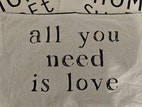 all you
need
is love